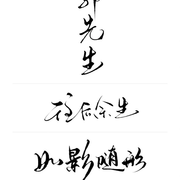 郭先生
往后余生
如影随形